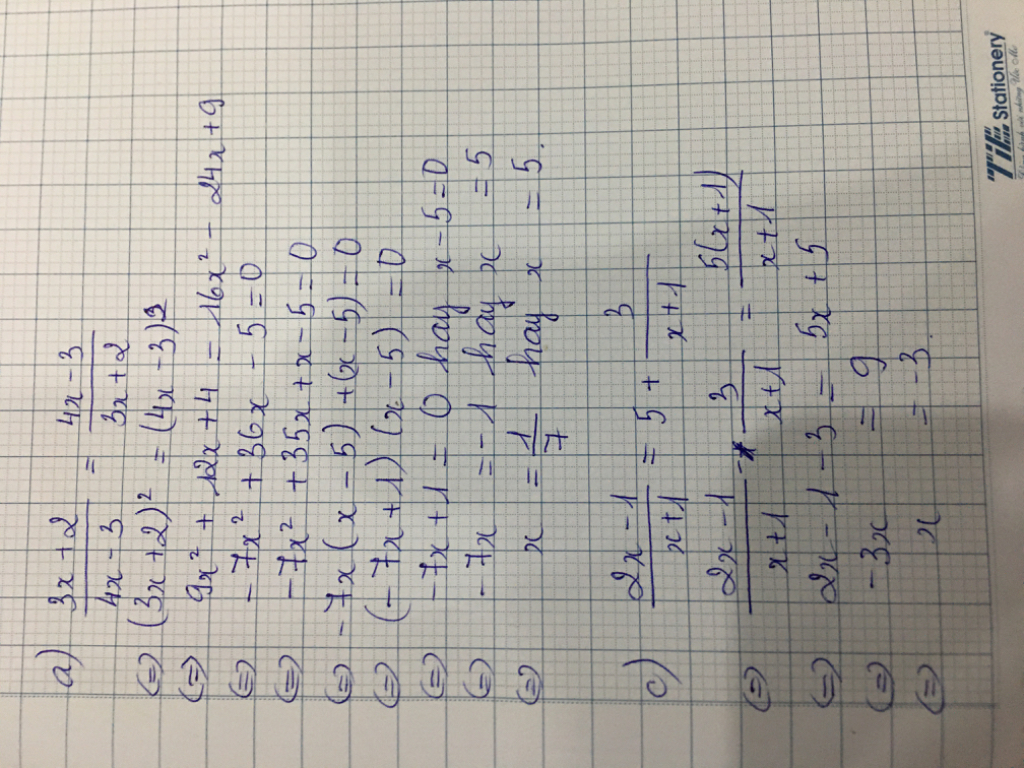 a) (3x+2)/(4x-3) = (4x-3)/(3x+2)
(=) (3x+2)² = (4x-3)2
(=) 9x² + 12x+4 = 16x² - 24x+9
(=) -7x² + 36x - 5 = 0
(=) -7x² + 35x + x - 5 = 0
(=) -7x(x-5) + (x-5) = 0
(=) (-7x+1)(x-5) = 0
(=) -7x+1 = 0 hay x-5=0
(=) -7x = -1 hay x = 5
(=) x = 1/7 hay x = 5.
c) (2x-1)/(x+1) = 5 + 3/(x+1)
(=) (2x-1)/(x+1) - 3/(x+1) = 5(x+1)/(x+1)
(=) 2x-1-3 = 5x+5
(=) -3x = 9
(=) x = -3.
TIE Stationery